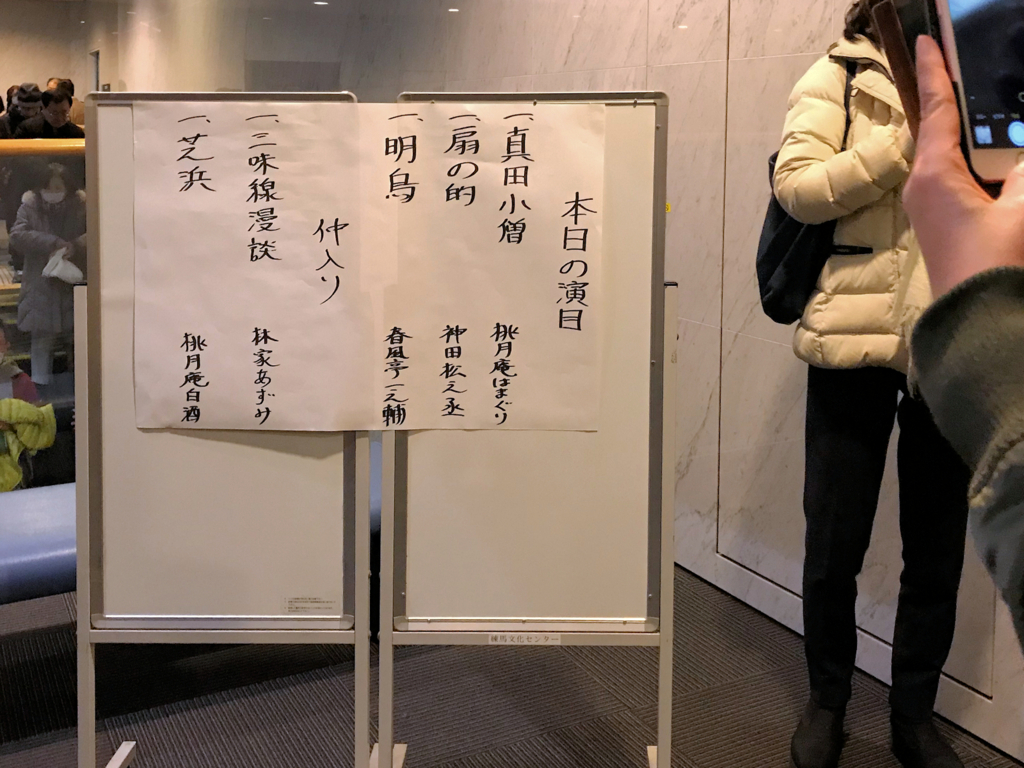 本日の演目
一、真田小僧 桃月庵はまぐり
一、扇の的 神田松之丞
一、明烏 春風亭一之輔
仲入り
一、三味線漫談 林家あずみ
一、芝浜 桃月庵白酒
練馬文化センター